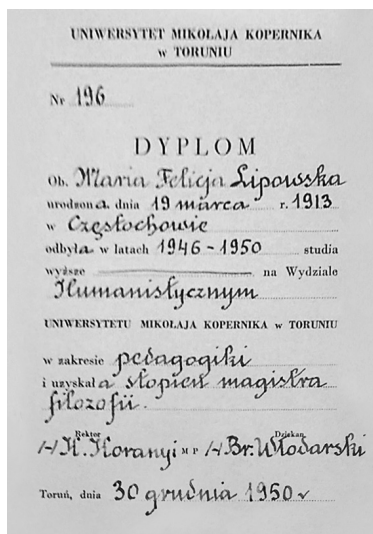 UNIWERSYTET MIKOŁAJA KOPERNIKA
w TORUNIU
Nr 196
DYPLOM
Ob. Maria Felicja Lipowska
urodzona dnia 19 marca r. 1913
w Częstochowie
odbyła w latach 1946-1950 studia
wyższe na Wydziale
Humanistycznym
UNIWERSYTETU MIKOŁAJA KOPERNIKA w TORUNIU
w zakresie pedagogiki
i uzyskała stopień magistra
filozofii.
Rektor Dziekan
/-/ K. Koranyi M P /-/ Br. Włodarski
Toruń, dnia 30 grudnia 1950 r